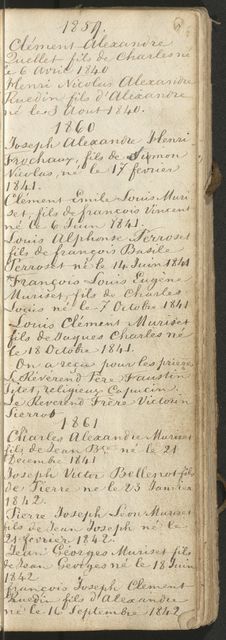 1859.
Clément Alexandre
Quellet fils de Charles né
le 6 Avril 1840
Henri Nicolas Alexandre
Ruedin fils d'Alexandre
né le 3 Aout 1840.
1860
Joseph Alexandre Henri
Frochaux, fils de Simon
Nicolas, né le 17 fevrier
1841.
Clément Emile Louis Muri
set, fils de françois Vincent
né le 6 Juin 1841.
Louis Alphonse Perroset
fils de françois Basile
Perroset né le 14 Juin 1841
François Louis Eugène
Muriset, fils de Charles
Louis né le 7 Octobre 1841
Louis Clément Muriset
fils de Jaques Charles né
le 18 Octobre 1841.
On a reçu pour les prières
Le Réverend Père Faustin
religieux Capucin.
Le Reverend Frère Victorin
Pierrot
1861
Charles Alexandre Muriset
fils de Jean Bte né le 21
Décembre 1841
Joseph Victor Bellenot fils
de Pierre né le 25 Janvier
1842.
Pierre Joseph Léon Muriset
fils de Jean Joseph né le
21 fevrier 1842.
Jean Georges Muriset fils
de Jean Georges né le 18 Juin
1842
François Joseph Clément
Ruedin fils d'Alexandre
né le 16 Septembre 1842